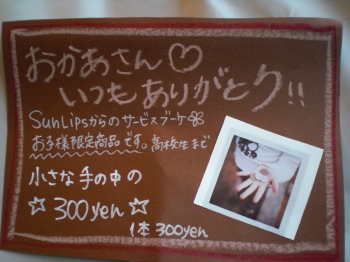 おかあさん♡
いつもありがとう!!
SunLipsからのサービスブーケ
お子様限定商品です。高校生まで
小さな手の中の
☆300yen☆
1本300yen